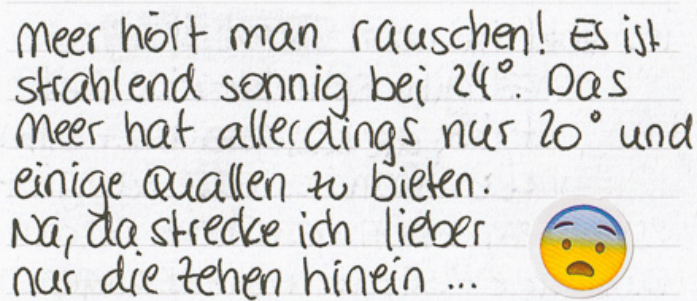 Meer hört man rauschen! Es ist
strahlend sonnig bei 24°. Das
Meer hat allerdings nur 20° und
einige Quallen zu bieten.
Na, da strecke ich lieber
nur die Zehen hinein ...